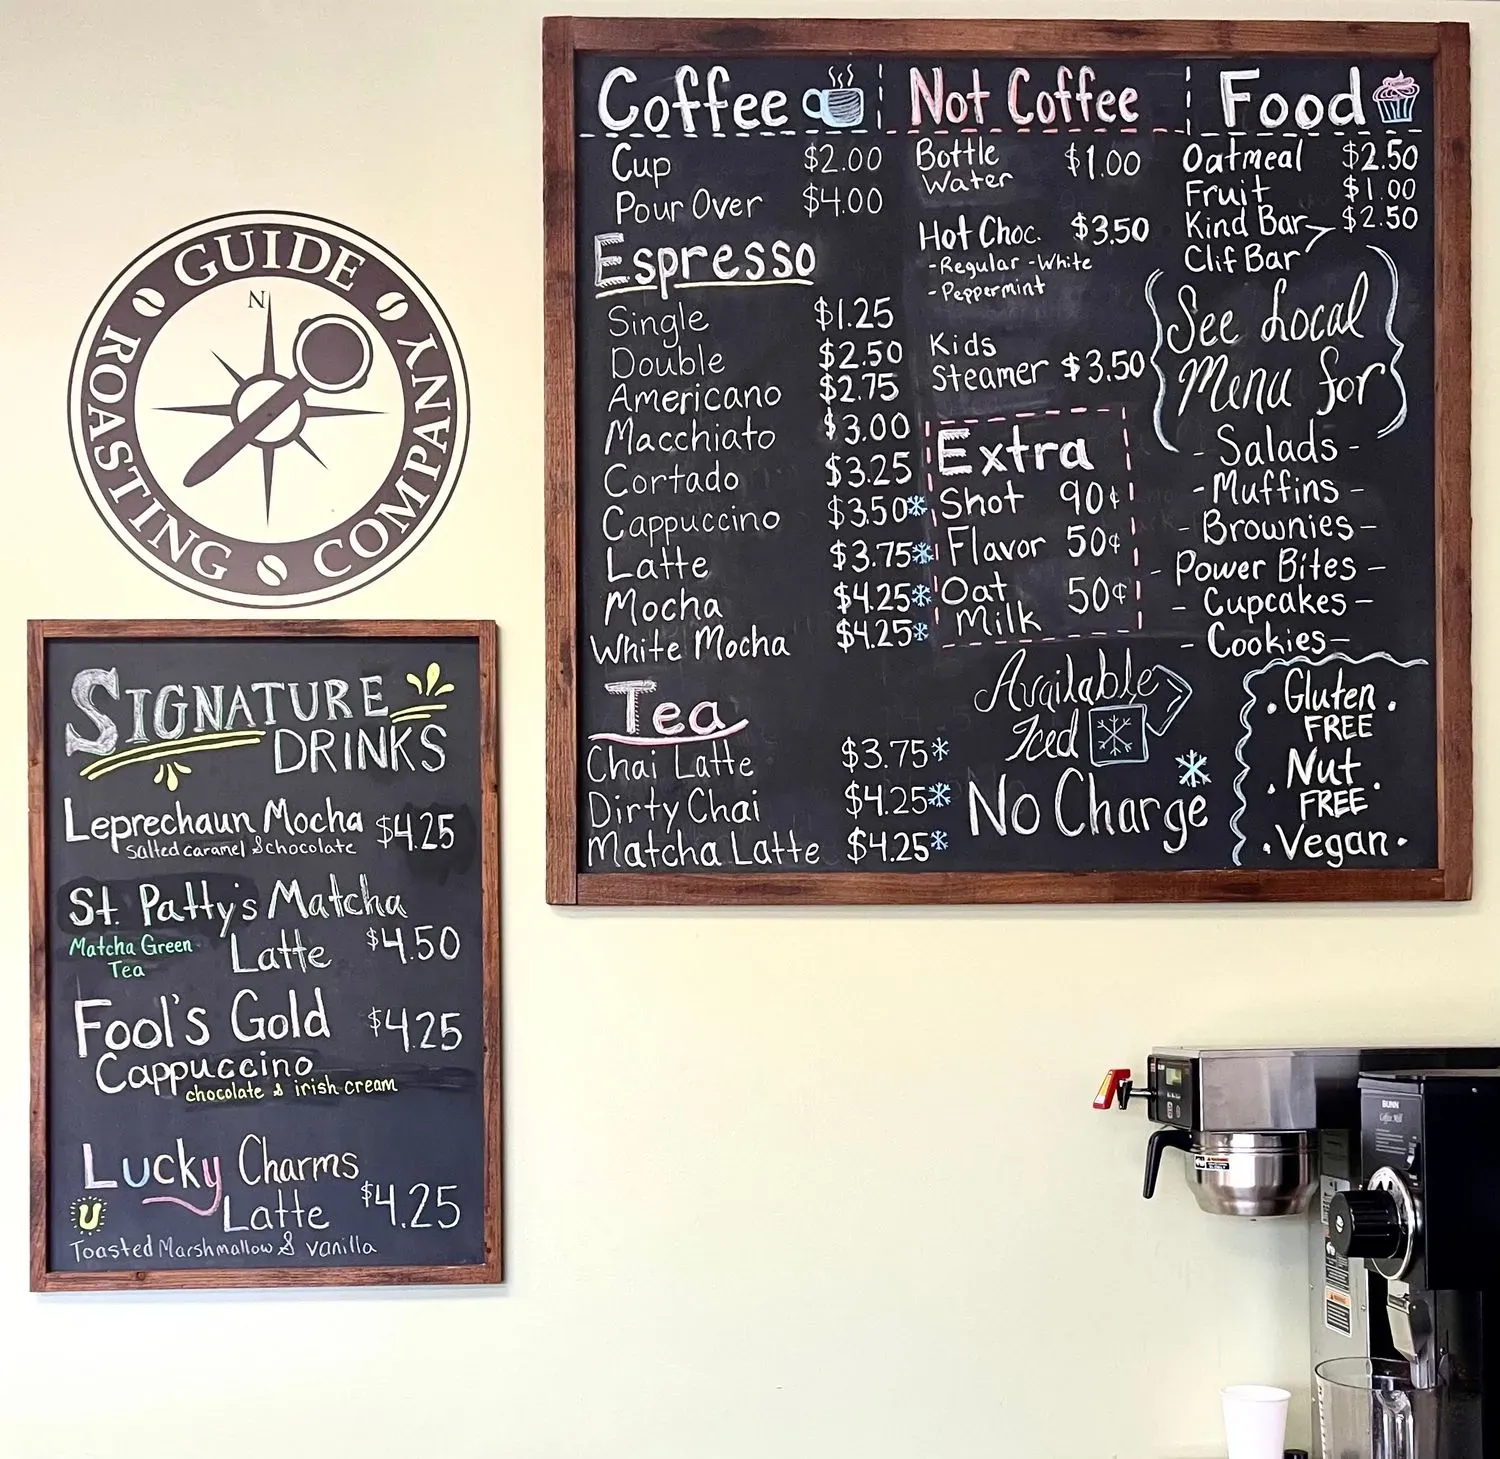 GUIDE
ROASTING COMPANY
N
SIGNATURE
DRINKS
Leprechaun Mocha $4.25
Salted caramel & chocolate
St. Patty's Matcha
Latte $4.50
Matcha Green
Tea
Fool's Gold $4.25
Cappuccino
chocolate & irish cream
Lucky Charms
Latte $4.25
Toasted Marshmallow & vanilla
Coffee
Cup $2.00
Pour Over $4.00
Espresso
Single $1.25
Double $2.50
Americano $2.75
Macchiato $3.00
Cortado $3.25
Cappuccino $3.50
Latte $3.75
Mocha $4.25
White Mocha $4.25
Tea
Chai Latte $3.75
Dirty Chai $4.25
Matcha Latte $4.25
Not Coffee
Bottle
Water $1.00
Hot Choc. $3.50
-Regular -White
-Peppermint
Kids
Steamer $3.50
Extra
Shot 90¢
Flavor 50¢
Oat
Milk 50¢
Available
Iced
No Charge
Food
Oatmeal $2.50
Fruit $1.00
Kind Bar $2.50
Clif Bar
See Local
Menu for
- Salads -
- Muffins -
- Brownies -
- Power Bites -
- Cupcakes -
- Cookies -
. Gluten .
FREE
. Nut .
FREE
. Vegan .
BUNN
Coffee Mill